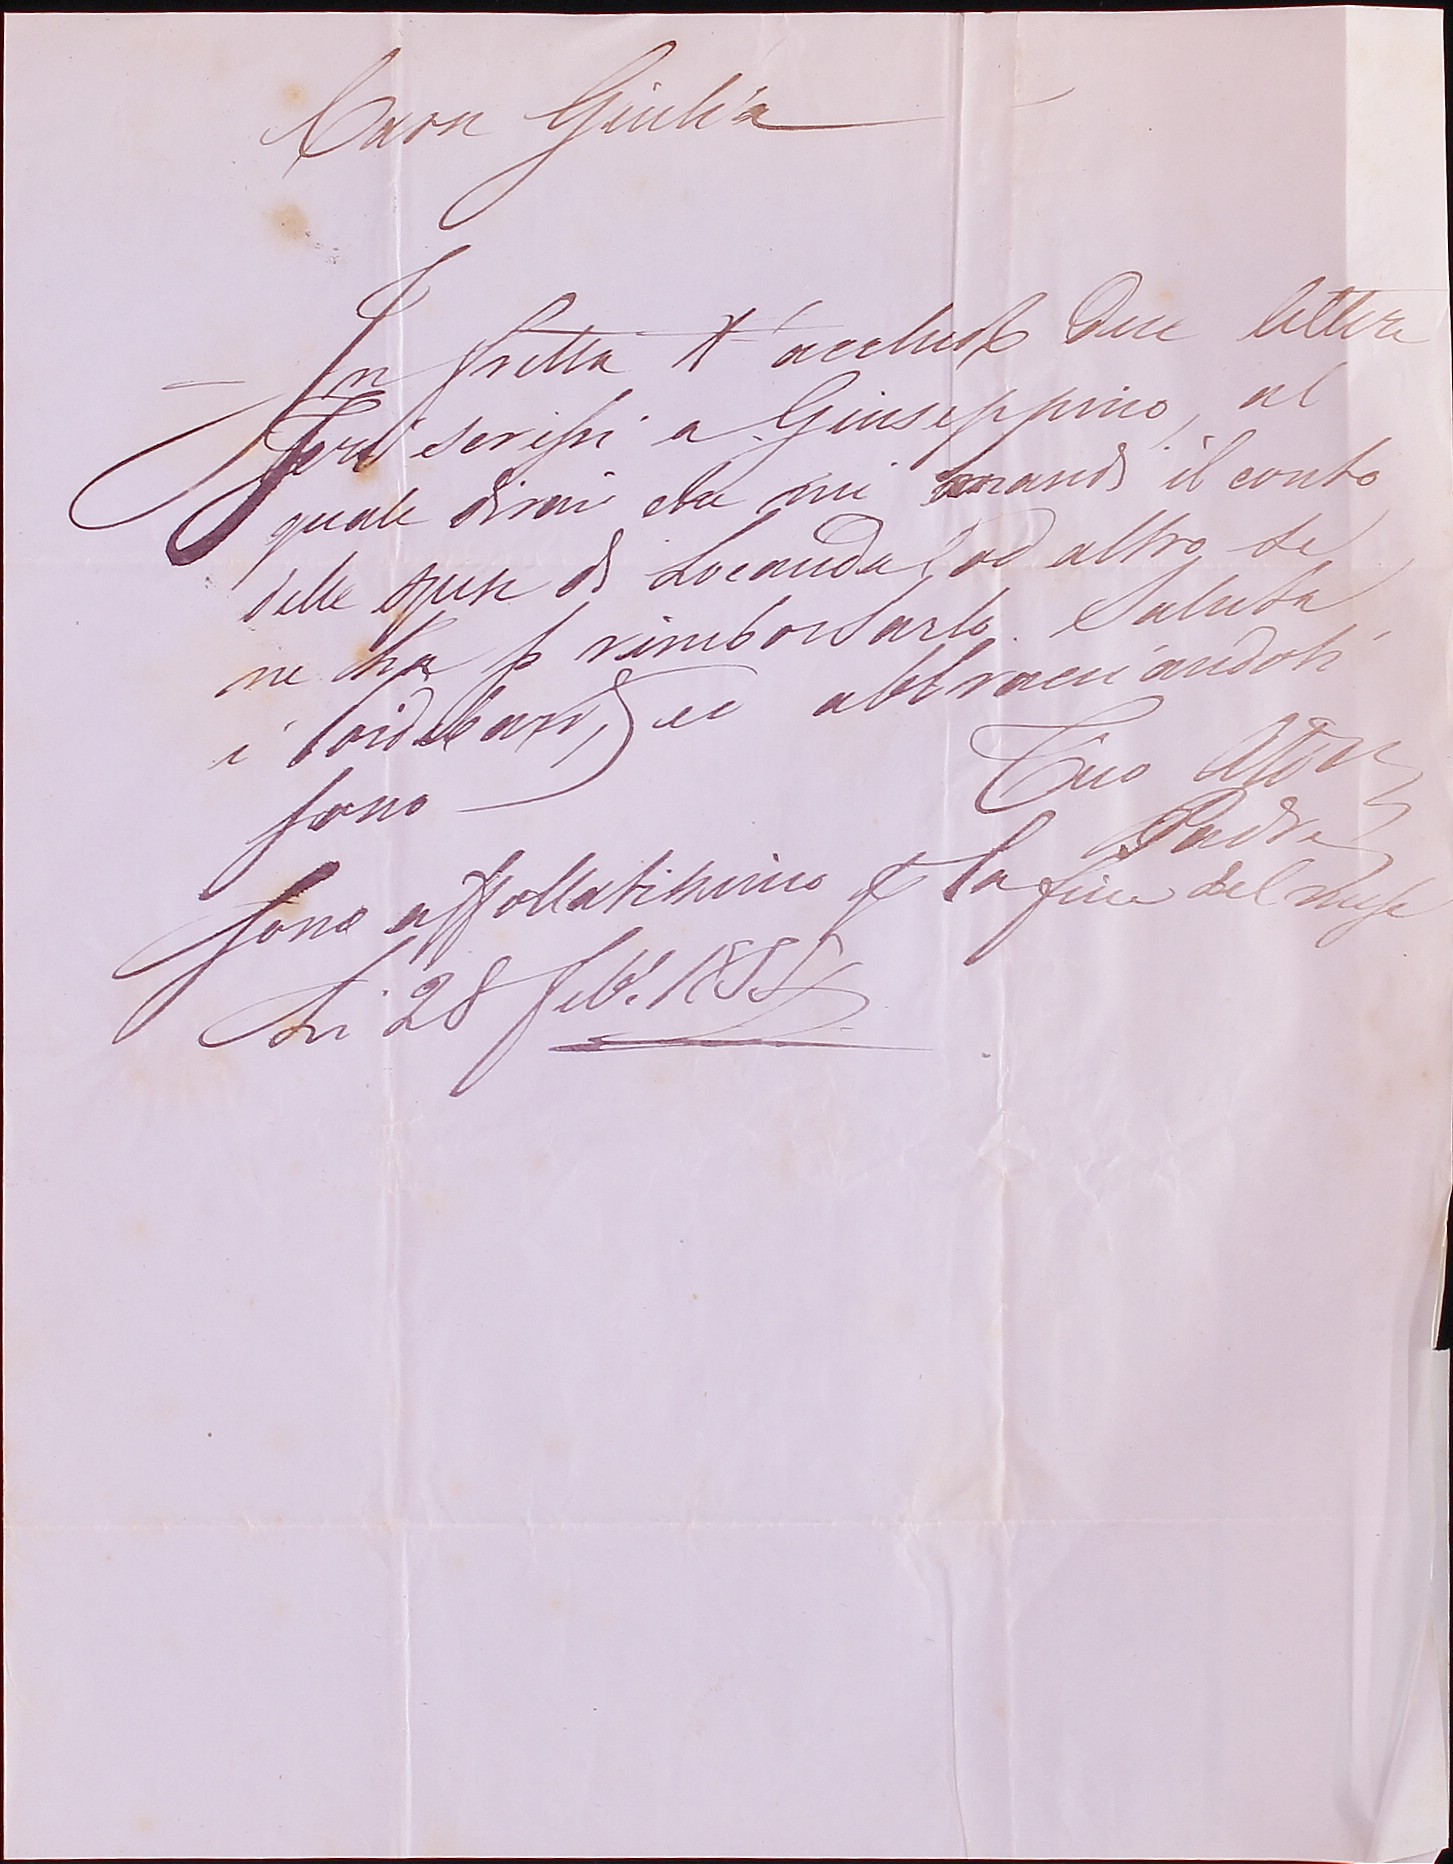 Cara Giulia
In fretta t'acchiudo due lettere
Jeri scrissi a Giuseppino, al
quale dirai che mi mandi il conto
delle spese di Locanda, od altro se
ne ha p rimborsarlo. Saluta
i abbracciandoti
sono Tuo
Padre
Sono affollatissimo p la fine del mese
Li 28 Feb.